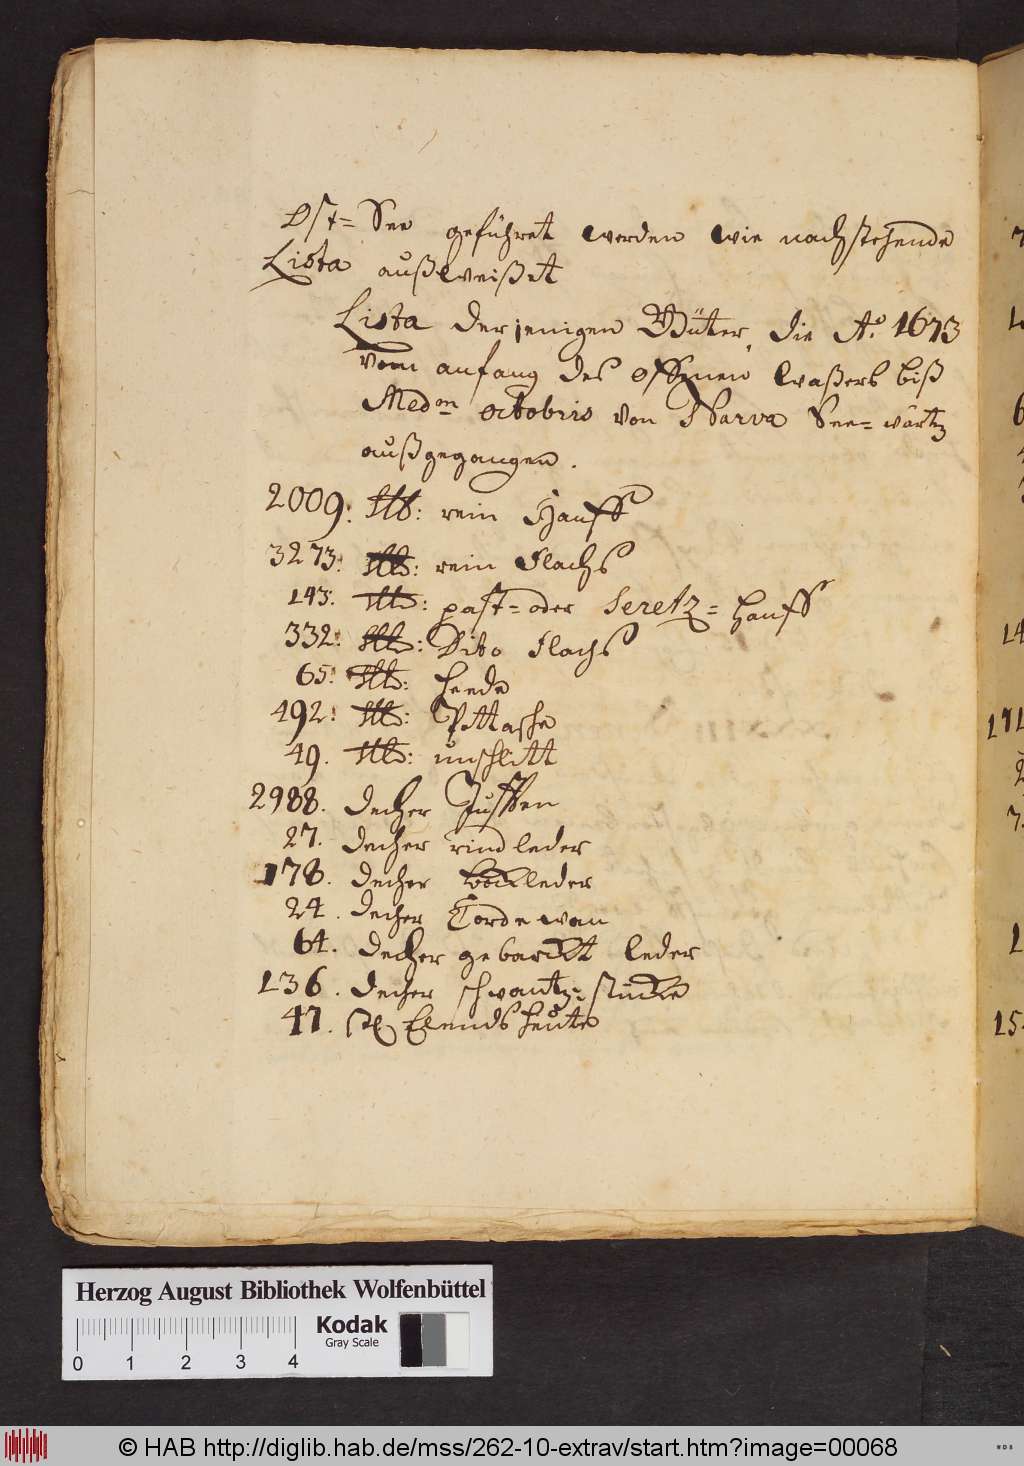 Ost= See geführet werden wie nachstehende
Lista außweißet
Lista derjenigen Güter, die Aº. 1673
vom anfang des offenen waßers biß
Med^m octobris von Narva See= wärtz
außgegangen.
2009: tlb: rein Hanff
3273: tlb: rein Flachs
143: tlb: past= oder Seretz= Hanff
332: tlb: Dito Flachs
65: tlb: Heede
492: tlb: Pottasche
49. tlb: unschlitt
2988. decher Jufften
27. decher rindleder
178. decher böckleder
24. decher Cordewan
64. decher gebarckt leder
136. decher schwantz= stücke
47. Elends Heüte
Herzog August Bibliothek Wolfenbüttel
Kodak
Gray Scale
0 1 2 3 4
© HAB http://diglib.hab.de/mss/262-10-extrav/start.htm?image=00068